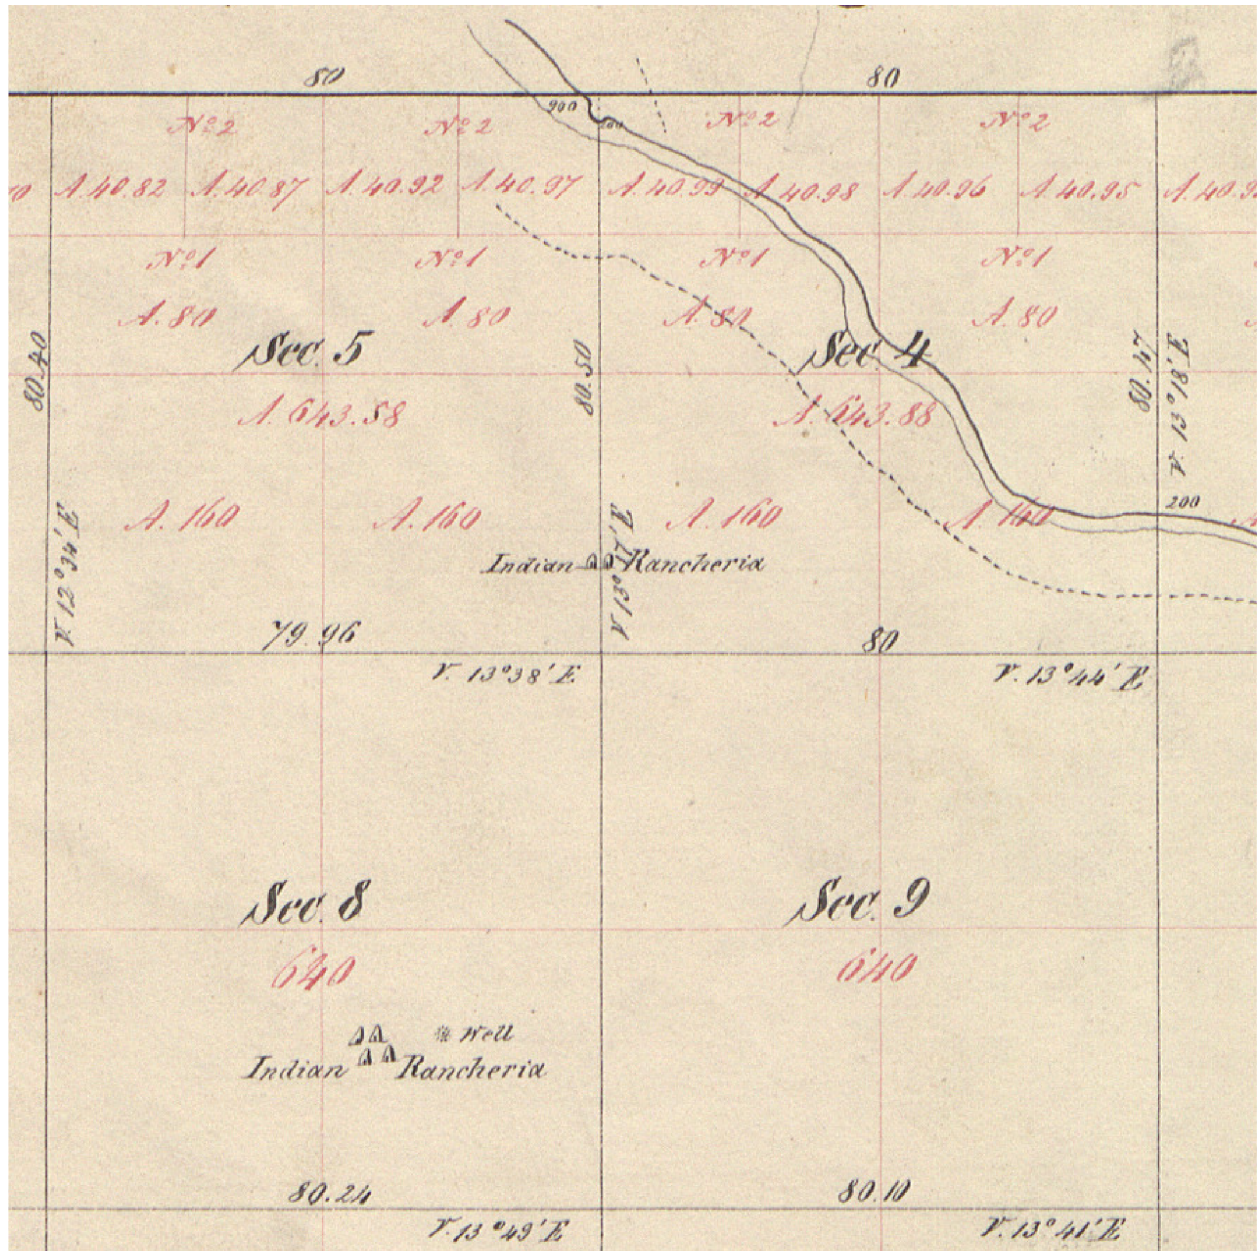 80 80
900 200
Nº 2 Nº 2 Nº 2 Nº 2
A. 40.82 A. 40.87 A. 40.92 A. 40.97 A. 40.99 A. 40.98 A. 40.96 A. 40.95
Nº 1 Nº 1 Nº 1 Nº 1
A. 80 A. 80 A. 80 A. 80
Sec. 5 Sec. 4
80.40 80.50 80.47
V. 13° 18' E.
A. 643.58 A. 643.88
200
A. 160 A. 160 A. 160 A. 160
V. 12° 34' E
Indian Rancheria
79.96 80
V. 13° 38' E V. 13° 44' E
Sec. 8 Sec. 9
640 640
Well
Indian Rancheria
80.24 80.10
V. 13° 49' E V. 13° 41' E